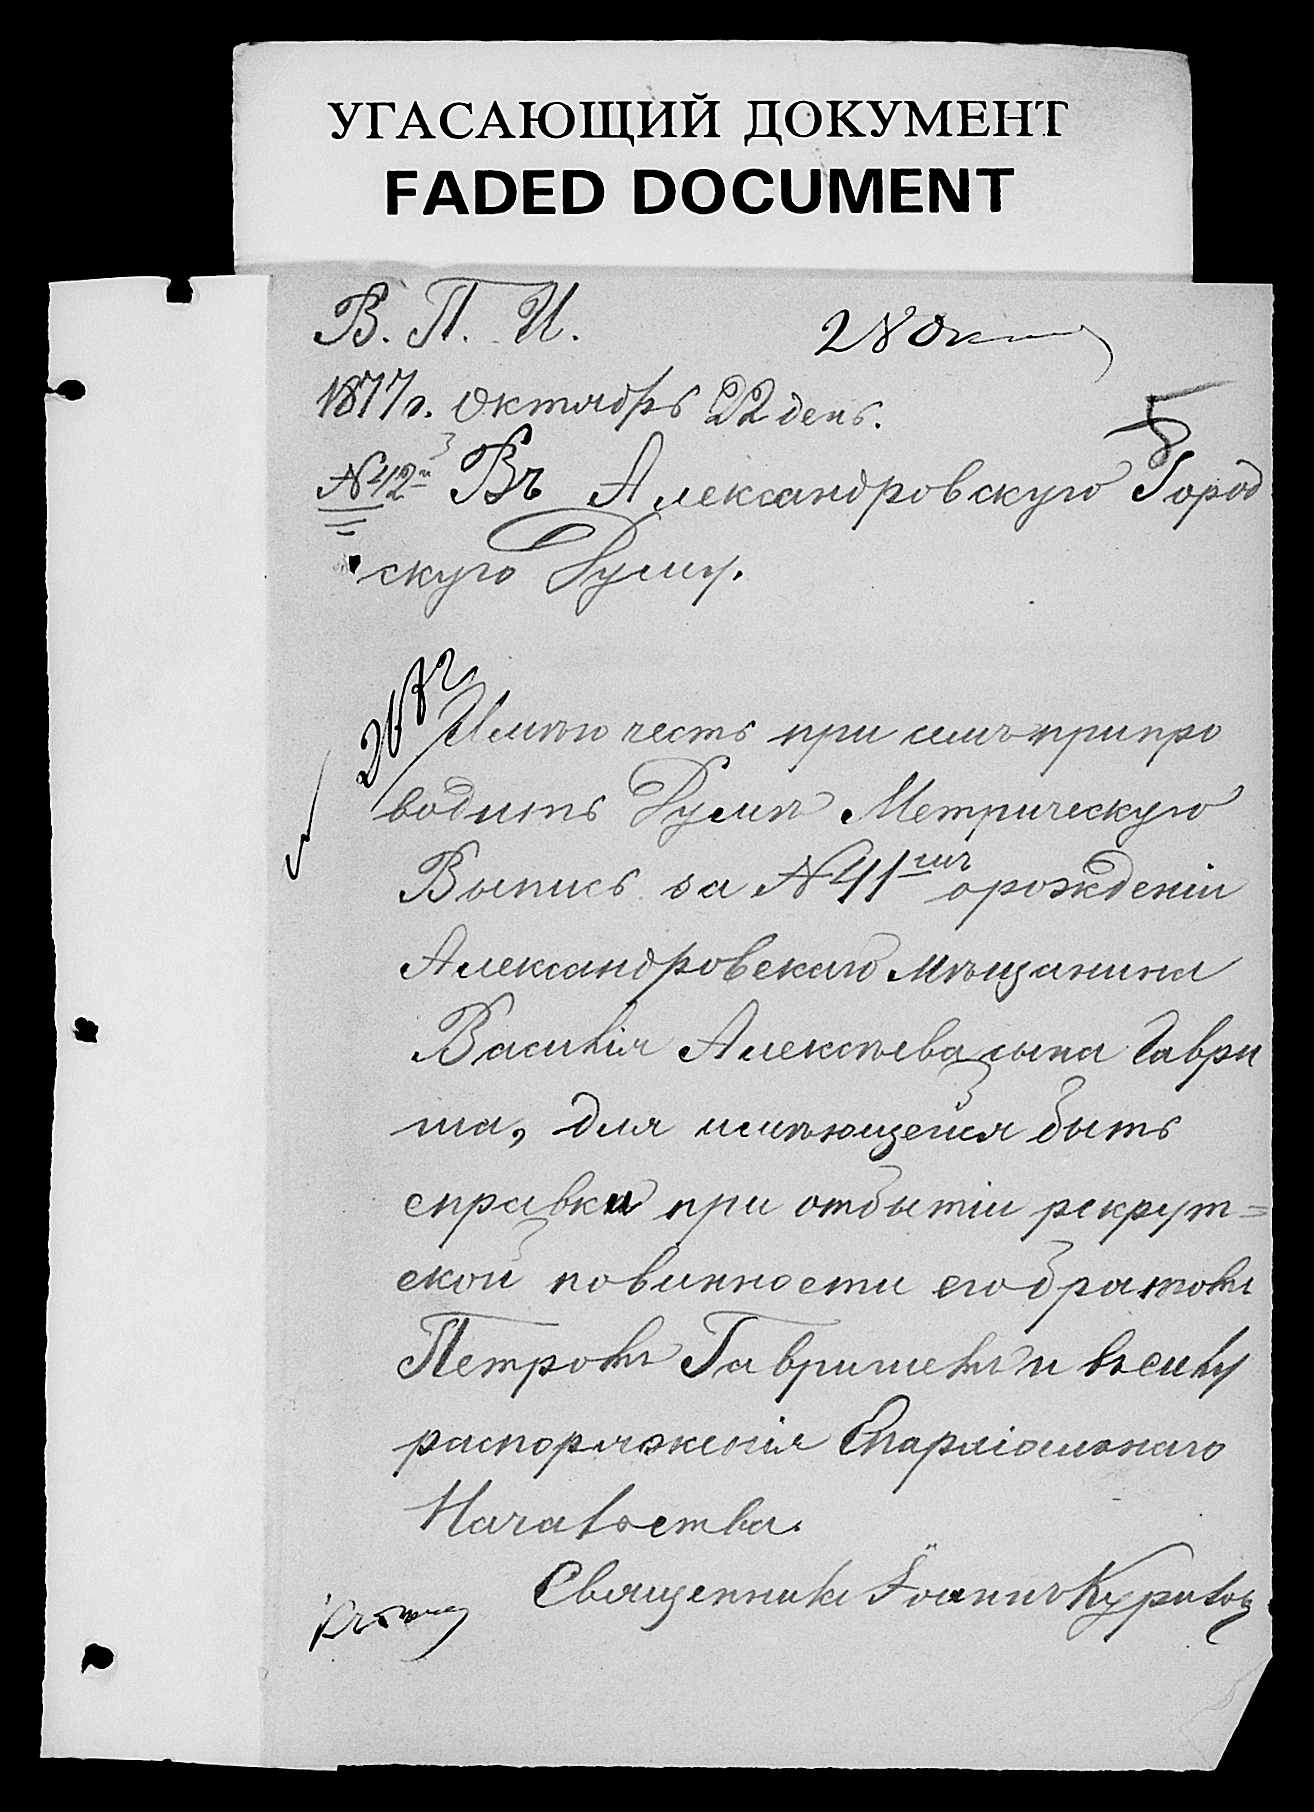 УГАСАЮЩИЙ ДОКУМЕНТ
FADED DOCUMENT
В. П. И.
28 Окт
1877 г. Октябрь 22 день.
5
№ 42й Въ Александровскую Город
скую Думу.
Имѣю честь при семъ припро
водить Думѣ Метрическую
Выпись за № 41мъ о рожденіи
Александровскаго мѣщанина
Василія Алексѣева сына Гаври
ша, для имѣющейся быть
справки при отбытіи рекрут=
ской повинности его братомъ
Петромъ Гавришемъ и въ силу
распоряженія Епархіальнаго
Начальства.
Священникъ Іоаннъ